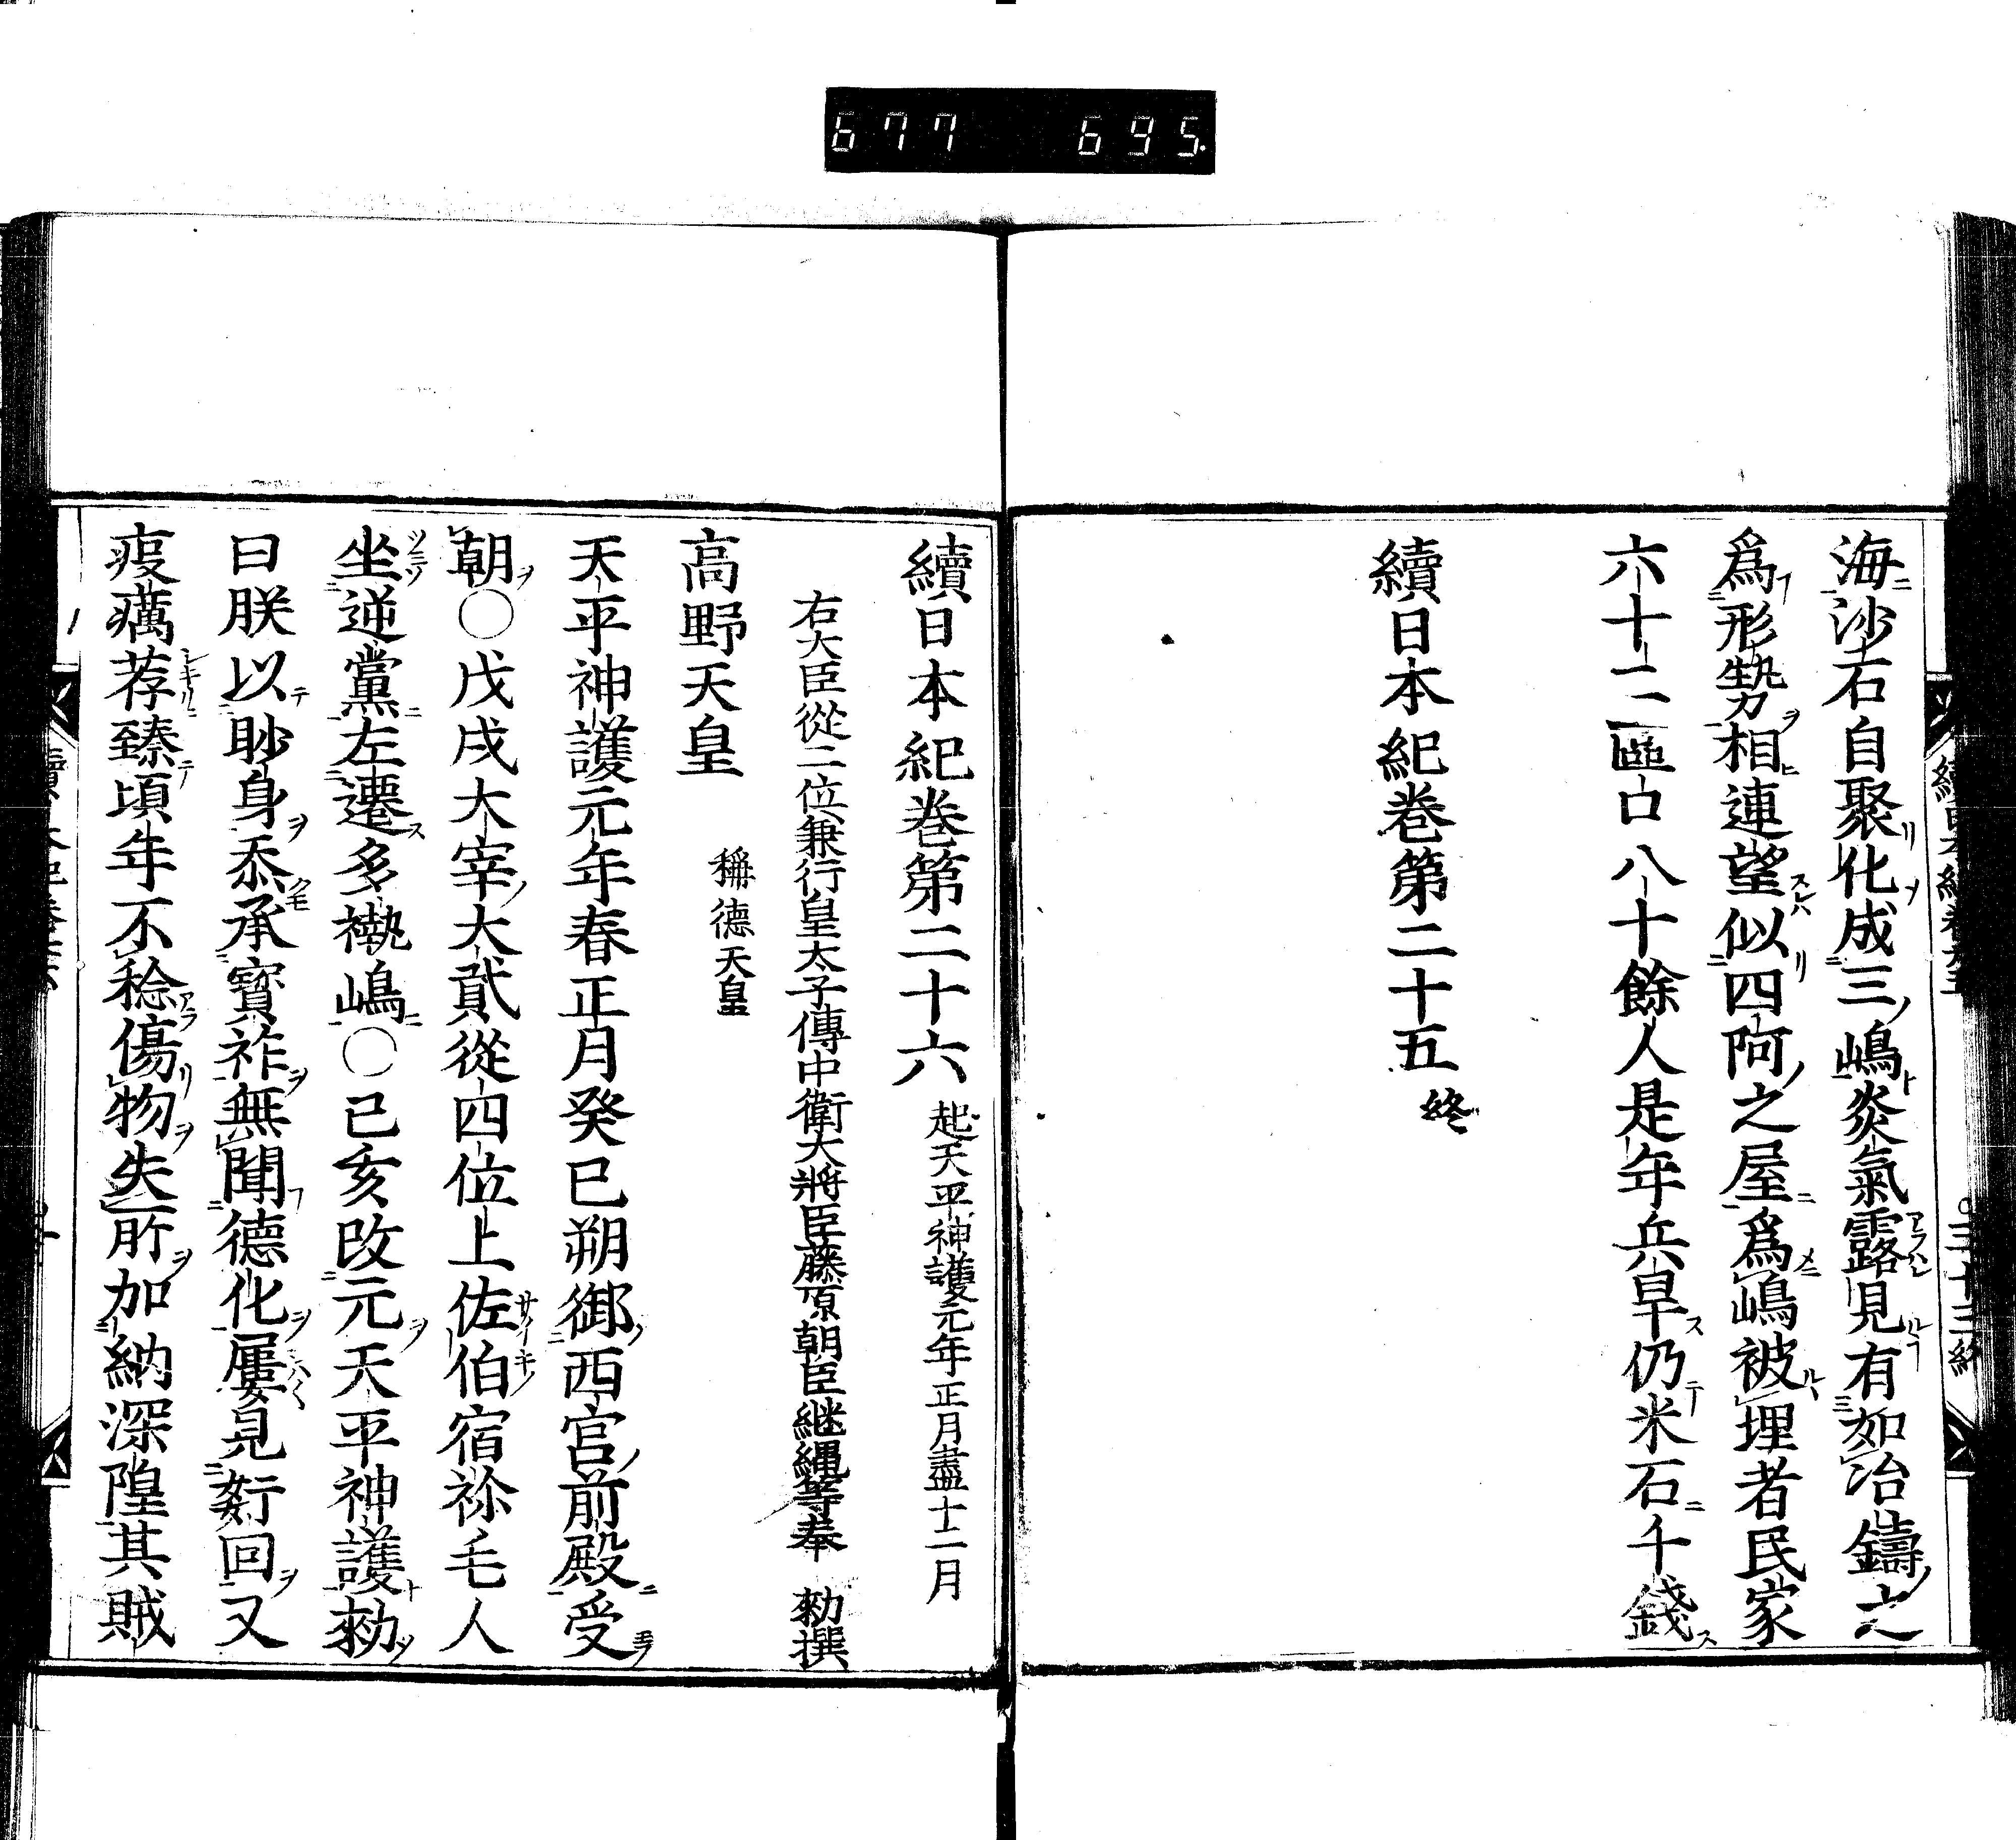 677 695
海沙石自聚化成三嶋炎氣露見有如冶鑄之
爲形勢相連望似四阿之屋爲嶋被埋者民家
六十二區口八十餘人是年兵旱仍米石千錢
續日本紀巻第二十五 終
續日本紀巻第二十六 起天平神護元年正月盡十二月
右大臣從二位兼行皇太子傅中衛大將臣藤原朝臣継縄等奉 勅撰
高野天皇 稱德天皇
天平神護元年春正月癸巳朔御西宮前殿受
朝〇戊戌大宰大貳從四位上佐伯宿祢毛人
坐逆黨左遷多褹嶋〇己亥改元天平神護勅
曰朕以眇身忝承寶祚無聞德化屢見姧回又
疫癘荐臻頃年不稔傷物失所加納深隍其賊